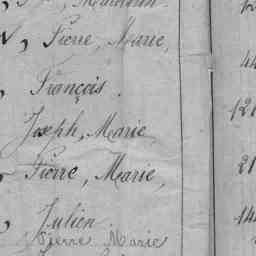 Pierre, Marie,
44
François.
121
Joseph, Marie
Pierre, Marie,
21
Julien
Pierre Marie